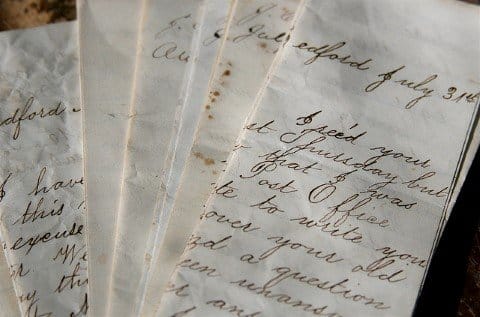 edford
I have
this
excuse
J.
Au
J.
July
edford July 31st
Rec'd your
st Thursday but
that I was
ost Office
te to write you
over your old
d a question
en unans
r an